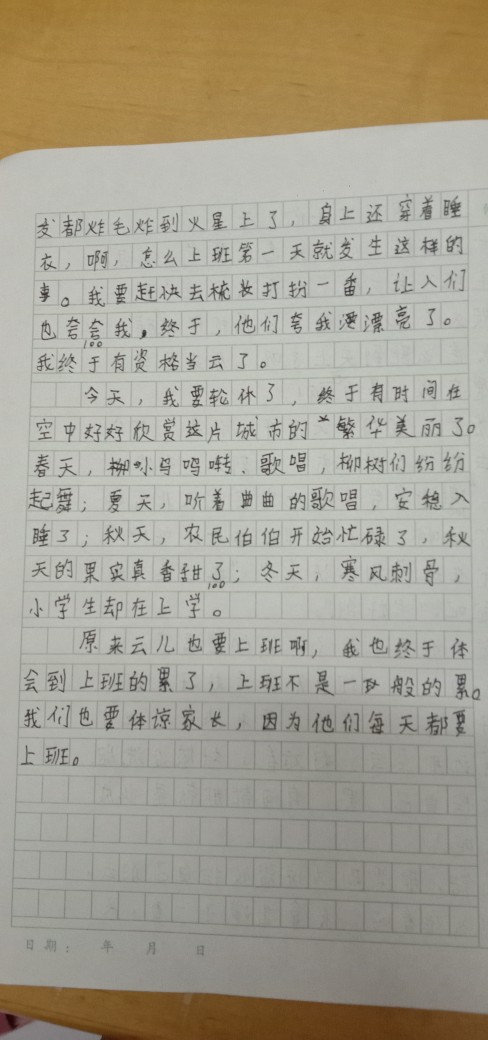 发都炸毛炸到火星上了，身上还穿着睡
衣，啊，怎么上班第一天就发生这样的
事。我要赶快去梳妆打扮一番，让人们
也夸夸我。终于，他们夸我漂亮了。
100
我终于有资格当云了。
今天，我要轮休了，终于有时间在
空中好好欣赏这片城市的繁华美丽了。
春天，小鸟鸣啭、歌唱，柳树们纷纷
起舞；夏天，听着曲曲的歌唱，安稳入
睡了；秋天，农民伯伯开始忙碌了，秋
天的果实真香甜了；冬天，寒风刺骨，
100
小学生却在上学。
原来云儿也要上班啊，我也终于体
会到上班的累了，上班不是一般的累。
我们也要体谅家长，因为他们每天都要
上班。
日期： 年 月 日